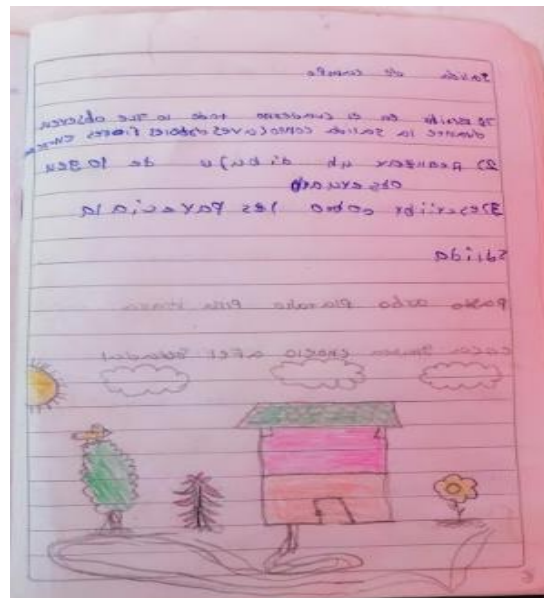 Salida de campo
escribir en el cuaderno todo lo que observen
durante la salida como(aves arboles flores
2) Realizar un dibujo de lo que
observado
3) escribir como les parecia la
salida
pasto arbo platano piña
cacao